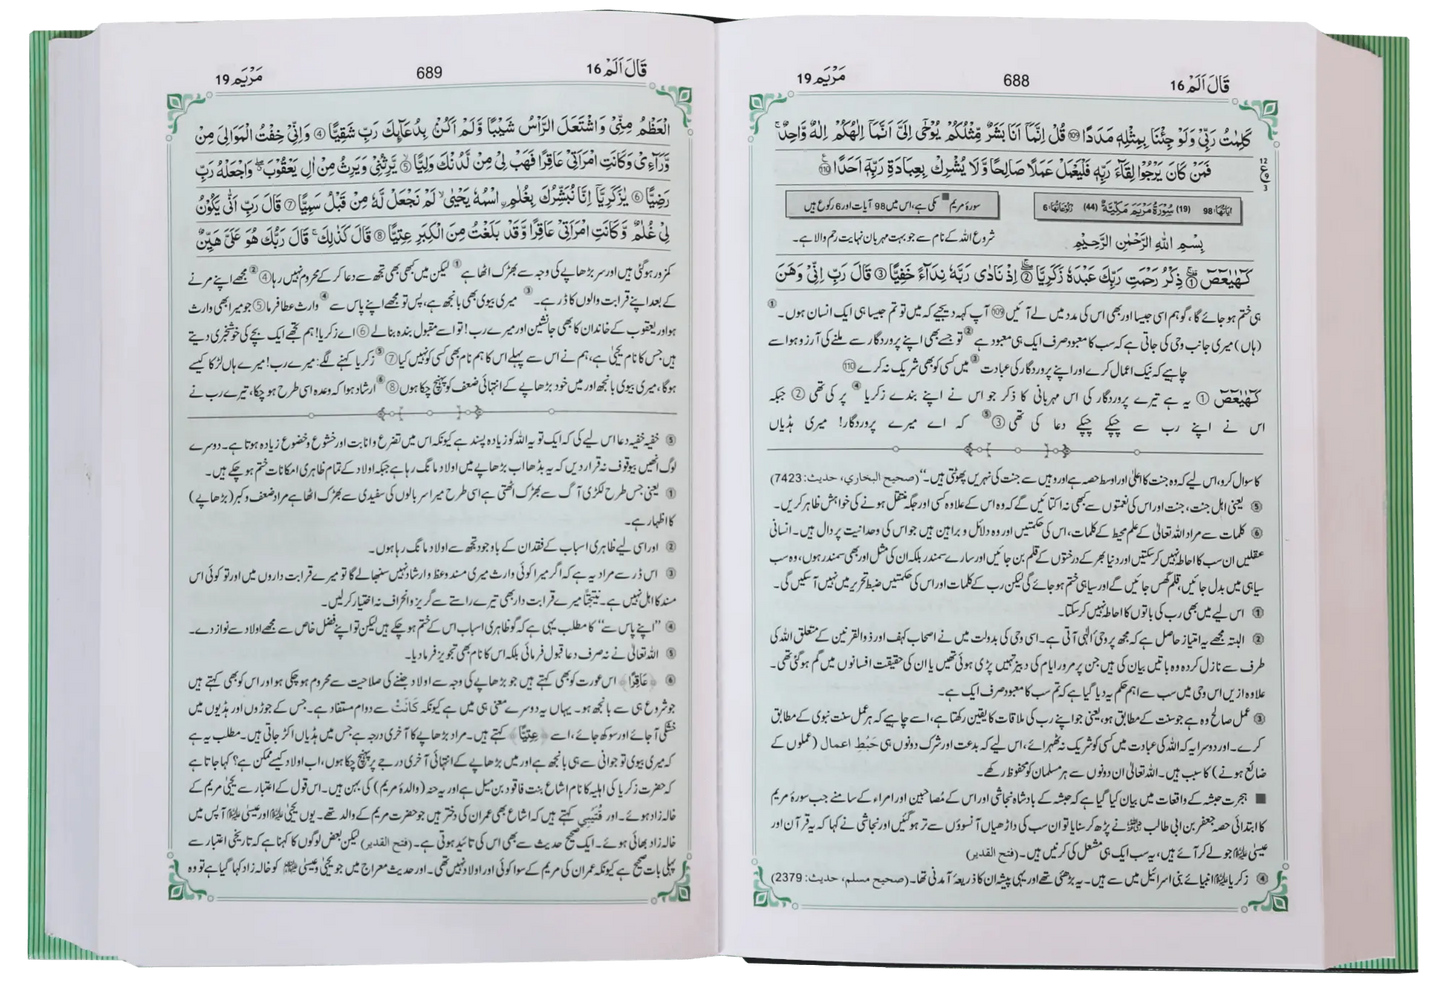 قَالَ اَلَمْ 16
688
مَرْيَم 19
كَلِمٰتُ رَبِّیْ وَلَوْ جِئْنَا بِمِثْلِهٖ مَدَدًا ﴿109﴾ قُلْ اِنَّمَآ اَنَا بَشَرٌ مِّثْلُكُمْ يُوْحٰٓی اِلَیَّ اَنَّمَآ اِلٰهُكُمْ اِلٰهٌ وَّاحِدٌ ۚ
فَمَنْ كَانَ يَرْجُوْا لِقَآءَ رَبِّهٖ فَلْيَعْمَلْ عَمَلًا صَالِحًا وَّلَا يُشْرِكْ بِعِبَادَةِ رَبِّهٖٓ اَحَدًا ﴿110﴾
اٰيَاتُهَا: 98 (19) سُوْرَةُ مَرْيَمَ مَكِّيَّةٌ (44) رُكُوْعَاتُهَا: 6
سورۂ مریم مکی ہے، اس میں 98 آیات اور 6 رکوع ہیں
بِسْمِ اللّٰهِ الرَّحْمٰنِ الرَّحِيْمِ
شروع اللہ کے نام سے جو بہت مہربان نہایت رحم والا ہے۔
كٓهٰيٰعٓصٓ ① ذِكْرُ رَحْمَتِ رَبِّكَ عَبْدَهٗ زَكَرِيَّا ② اِذْ نَادٰی رَبَّهٗ نِدَآءً خَفِيًّا ③ قَالَ رَبِّ اِنِّیْ وَهَنَ
ہی ختم ہو جائے گا، گو ہم اسی جیسا اور بھی اس کی مدد میں لے آئیں (109) آپ کہہ دیجیے کہ میں تو تم جیسا ہی ایک انسان ہوں۔ ①
(ہاں) میری جانب وحی کی جاتی ہے کہ سب کا معبود صرف ایک ہی معبود ہے ② تو جسے بھی اپنے پروردگار سے ملنے کی آرزو ہو اسے
چاہیے کہ نیک اعمال کرے اور اپنے پروردگار کی عبادت ③ میں کسی کو بھی شریک نہ کرے (110)
كٓهٰيٰعٓصٓ ① یہ ہے تیرے پروردگار کی اس مہربانی کا ذکر جو اس نے اپنے بندے زکریا ④ پر کی تھی ② جبکہ
اس نے اپنے رب سے چپکے چپکے دعا کی تھی ③ ⑤ کہ اے میرے پروردگار! میری ہڈیاں
کا سوال کرو، اس لیے کہ وہ جنت کا اعلیٰ اور اوسط حصہ ہے اور وہیں سے جنت کی نہریں پھوٹتی ہیں۔“ (صحیح البخاري، حدیث: 7423)
⑤ یعنی اہل جنت، جنت اور اس کی نعمتوں سے کبھی نہ اکتائیں گے کہ وہ اس کے علاوہ کسی اور جگہ منتقل ہونے کی خواہش ظاہر کریں۔
⑥ کلمات سے مراد اللہ تعالیٰ کے علم محیط کے کلمات، اس کی حکمتیں اور وہ دلائل و براہین ہیں جو اس کی وحدانیت پر دال ہیں۔ انسانی
عقلیں ان سب کا احاطہ نہیں کر سکتیں اور دنیا بھر کے درختوں کے قلم بن جائیں اور سارے سمندر بلکہ ان کی مثل اور بھی سمندر ہوں، وہ سب
سیاہی میں بدل جائیں، قلم گھس جائیں گے اور سیاہی ختم ہو جائے گی لیکن رب کے کلمات اور اس کی حکمتیں ضبط تحریر میں نہیں آ سکیں گی۔
① اس لیے میں بھی رب کی باتوں کا احاطہ نہیں کر سکتا۔
② البتہ مجھے یہ امتیاز حاصل ہے کہ مجھ پر وحی الٰہی آتی ہے۔ اسی وحی کی بدولت میں نے اصحاب کہف اور ذوالقرنین کے متعلق اللہ کی
طرف سے نازل کردہ وہ باتیں بیان کی ہیں جن پر مرور ایام کی دبیز تہیں پڑی ہوئی تھیں یا ان کی حقیقت افسانوں میں گم ہو گئی تھی۔
علاوہ ازیں اس وحی میں سب سے اہم حکم یہ دیا گیا ہے کہ تم سب کا معبود صرف ایک ہے۔
③ عمل صالح وہ ہے جو سنت کے مطابق ہو، یعنی جو اپنے رب کی ملاقات کا یقین رکھتا ہے، اسے چاہیے کہ ہر عمل سنت نبوی کے مطابق
کرے۔ اور دوسرا یہ کہ اللہ کی عبادت میں کسی کو شریک نہ ٹھہرائے، اس لیے کہ بدعت اور شرک دونوں ہی حَبْطِ اعمال (عملوں کے
ضائع ہونے) کا سبب ہیں۔ اللہ تعالیٰ ان دونوں سے ہر مسلمان کو محفوظ رکھے۔
■ ہجرت حبشہ کے واقعات میں بیان کیا گیا ہے کہ حبشہ کے بادشاہ نجاشی اور اس کے مصاحبین اور امراء کے سامنے جب سورۂ مریم
کا ابتدائی حصہ جعفر بن ابی طالب نے پڑھ کر سنایا تو ان سب کی داڑھیاں آنسوؤں سے تر ہو گئیں اور نجاشی نے کہا کہ یہ قرآن اور
عیسیٰ جو لے کر آئے ہیں، یہ سب ایک ہی مشعل کی کرنیں ہیں۔ (فتح القدیر)
④ زکریا انبیائے بنی اسرائیل میں سے ہیں۔ یہ بڑھئی تھے اور یہی پیشہ ان کا ذریعۂ آمدنی تھا۔ (صحیح مسلم، حدیث: 2379)
قَالَ اَلَمْ 16
689
مَرْيَم 19
الْعَظْمُ مِنِّیْ وَاشْتَعَلَ الرَّاْسُ شَيْبًا وَّلَمْ اَكُنْۢ بِدُعَآئِكَ رَبِّ شَقِيًّا ④ وَاِنِّیْ خِفْتُ الْمَوَالِیَ مِنْ
وَّرَآءِیْ وَكَانَتِ امْرَاَتِیْ عَاقِرًا فَهَبْ لِیْ مِنْ لَّدُنْكَ وَلِيًّا ⑤ يَّرِثُنِیْ وَيَرِثُ مِنْ اٰلِ يَعْقُوْبَ ۖ وَاجْعَلْهُ رَبِّ
رَضِيًّا ⑥ يٰزَكَرِيَّآ اِنَّا نُبَشِّرُكَ بِغُلٰمِ ۨاسْمُهٗ يَحْيٰی ۙ لَمْ نَجْعَلْ لَّهٗ مِنْ قَبْلُ سَمِيًّا ⑦ قَالَ رَبِّ اَنّٰی يَكُوْنُ
لِیْ غُلٰمٌ وَّكَانَتِ امْرَاَتِیْ عَاقِرًا وَّقَدْ بَلَغْتُ مِنَ الْكِبَرِ عِتِيًّا ⑧ قَالَ كَذٰلِكَ ۚ قَالَ رَبُّكَ هُوَ عَلَیَّ هَيِّنٌ
کمزور ہو گئی ہیں اور سر بڑھاپے کی وجہ سے بھڑک اٹھا ہے ① لیکن میں کبھی بھی تجھ سے دعا کر کے محروم نہیں رہا ④ ② مجھے اپنے مرنے
کے بعد اپنے قرابت والوں کا ڈر ہے۔ ③ میری بیوی بھی بانجھ ہے، پس تو مجھے اپنے پاس سے ④ وارث عطا فرما ⑤ جو میرا بھی وارث
ہو اور یعقوب کے خاندان کا بھی جانشین اور میرے رب! تو اسے مقبول بندہ بنا لے ⑥ اے زکریا! ہم تجھے ایک بچے کی خوشخبری دیتے
ہیں جس کا نام یحییٰ ہے، ہم نے اس سے پہلے اس کا ہم نام بھی کسی کو نہیں کیا ⑦ ⑤ زکریا کہنے لگے: میرے رب! میرے ہاں لڑکا کیسے
ہو گا، میری بیوی بانجھ اور میں خود بڑھاپے کے انتہائی ضعف کو پہنچ چکا ہوں ⑧ ⑥ ارشاد ہوا کہ وعدہ اسی طرح ہو چکا، تیرے رب نے
⑤ خفیہ خفیہ دعا اس لیے کی کہ ایک تو یہ اللہ کو زیادہ پسند ہے کیونکہ اس میں تضرع و انابت اور خشوع و خضوع زیادہ ہوتا ہے۔ دوسرے
لوگ انھیں بیوقوف نہ قرار دیں کہ یہ بڈھا اب بڑھاپے میں اولاد مانگ رہا ہے جبکہ اولاد کے تمام ظاہری امکانات ختم ہو چکے ہیں۔
① یعنی جس طرح لکڑی آگ سے بھڑک اٹھتی ہے اسی طرح میرا سر بالوں کی سفیدی سے بھڑک اٹھا ہے مراد ضعف و کبر (بڑھاپے)
کا اظہار ہے۔
② اور اسی لیے ظاہری اسباب کے فقدان کے باوجود تجھ سے اولاد مانگ رہا ہوں۔
③ اس ڈر سے مراد یہ ہے کہ اگر میرا کوئی وارث میری مسند وعظ و ارشاد نہیں سنبھالے گا تو میرے قرابت داروں میں اور تو کوئی اس
مسند کا اہل نہیں ہے۔ نتیجتًا میرے قرابت دار بھی تیرے راستے سے گریز و انحراف نہ اختیار کر لیں۔
④ ”اپنے پاس سے“ کا مطلب یہی ہے کہ گو ظاہری اسباب اس کے ختم ہو چکے ہیں لیکن تو اپنے فضل خاص سے مجھے اولاد سے نواز دے۔
⑤ اللہ تعالیٰ نے نہ صرف دعا قبول فرمائی بلکہ اس کا نام بھی تجویز فرما دیا۔
⑥ ﴿عَاقِرًا﴾ اس عورت کو بھی کہتے ہیں جو بڑھاپے کی وجہ سے اولاد جننے کی صلاحیت سے محروم ہو چکی ہو اور اس کو بھی کہتے ہیں
جو شروع ہی سے بانجھ ہو۔ یہاں یہ دوسرے معنی ہی میں ہے کیونکہ كَانَتْ سے دوام مستفاد ہے۔ جس کے جوڑوں اور ہڈیوں میں
خشکی آ جائے اور سوکھ جائے، اسے ﴿عِتِيًّا﴾ کہتے ہیں۔ مراد بڑھاپے کا آخری درجہ ہے جس میں ہڈیاں اکڑ جاتی ہیں۔ مطلب یہ ہے
کہ میری بیوی تو جوانی سے ہی بانجھ ہے اور میں بڑھاپے کے انتہائی آخری درجے پر پہنچ چکا ہوں، اب اولاد کیسے ممکن ہے؟ کہا جاتا ہے
کہ حضرت زکریا کی اہلیہ کا نام اشاع بنت فاقود بن میل ہے اور یہ حنہ (والدۂ مریم) کی بہن ہیں۔ اس قول کے اعتبار سے یحییٰ مریم کے
خالہ زاد ہوئے۔ اور قُتَيبي کہتے ہیں کہ اشاع بھی عمران کی دختر ہیں جو حضرت مریم کے والد تھے۔ یوں یحییٰ اور عیسیٰ آپس میں
خالہ زاد بھائی ہوئے۔ ایک صحیح حدیث سے بھی اس کی تائید ہوتی ہے۔ (فتح القدیر) لیکن بعض لوگوں کا کہنا ہے کہ تاریخی اعتبار سے
پہلی بات صحیح ہے کیونکہ عمران کی مریم کے سوا کوئی اور اولاد نہیں تھی۔ اور حدیث معراج میں جو یحییٰ و عیسیٰ کو خالہ زاد کہا گیا ہے تو وہ